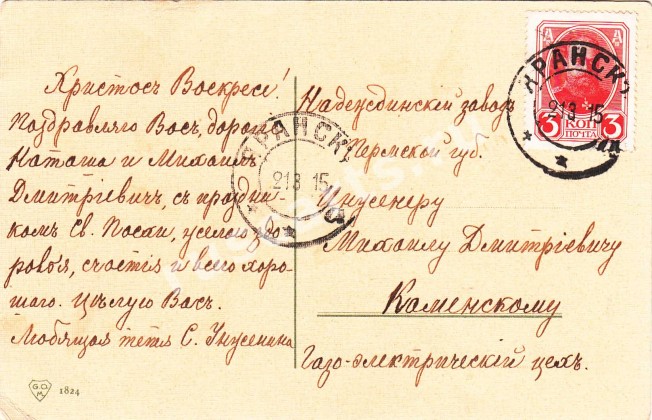 Христосъ Воскресе!
Поздравляю Васъ, дорогіе
Наташа и Михаилъ
Дмитріевичъ, съ праздни-
комъ Св. Пасхи, желаю здо-
ровья, счастія и всего хоро-
шаго. Цѣлую Васъ.
Любящая тетя С.
Надеждинскій заводъ
Пермской губ.
Инженеру
Михаилу Дмитріевичу
Каменскому
Газо-электрическій цехъ.
ЯРАНСКЪ
21 3 15
ЯРАНСКЪ
21 3 15
3 КОП 3
ПОЧТА
G.O.M.
1824